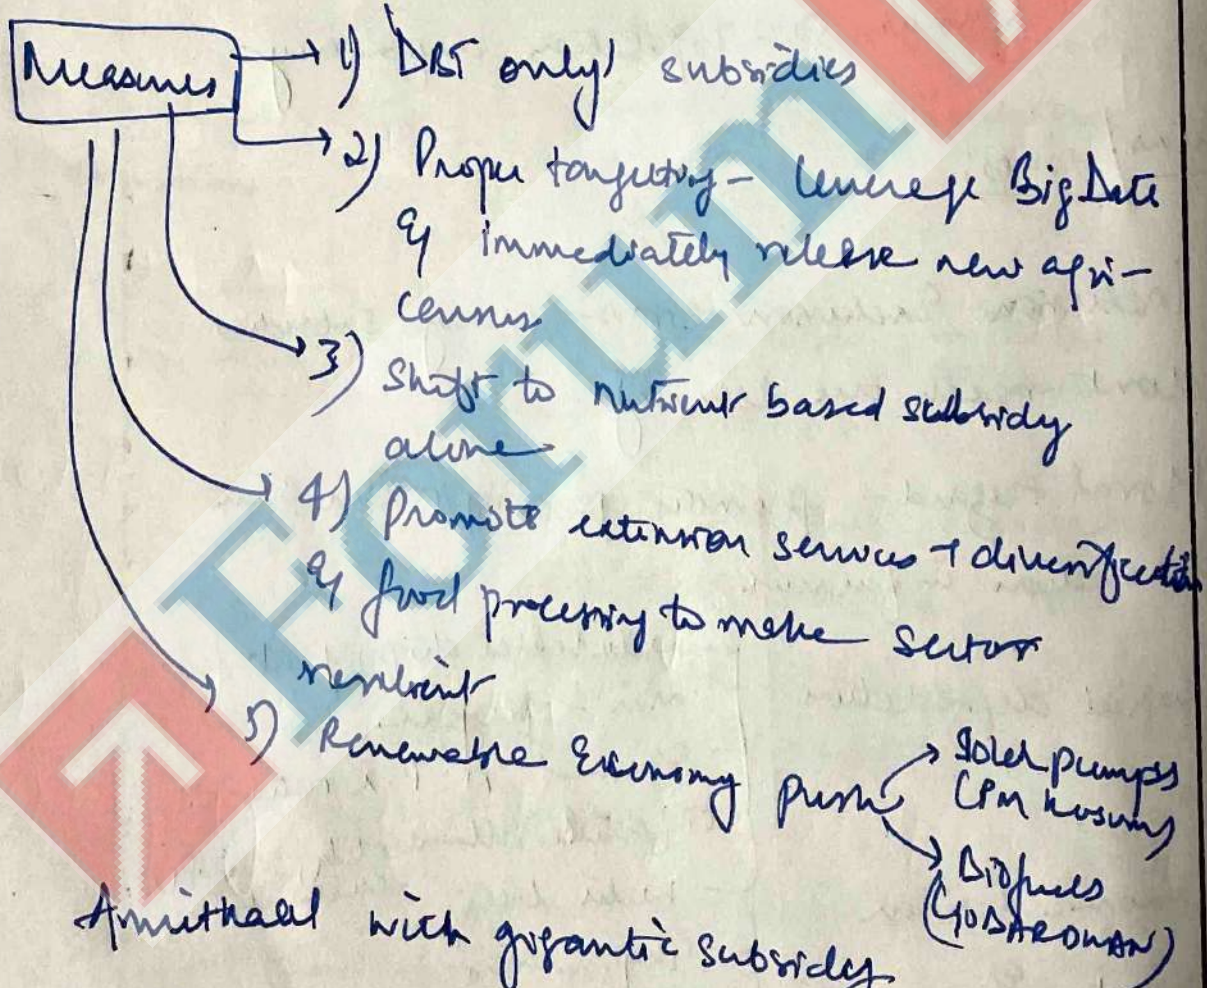 Measures
1) DBT only! subsidies
2) Proper targeting - leverage Big Data
eg immediately release new agri-
census
3) Shift to nutrient based subsidy
alone
4) Promote extension services + diversification
eg food processing to make sector
resilient
5) Renewable Economy push
Solar pumps
(PM Kusum)
Biofuels
(GOBARDHAN)
Amrithaal with gigantic subsidy
Forum